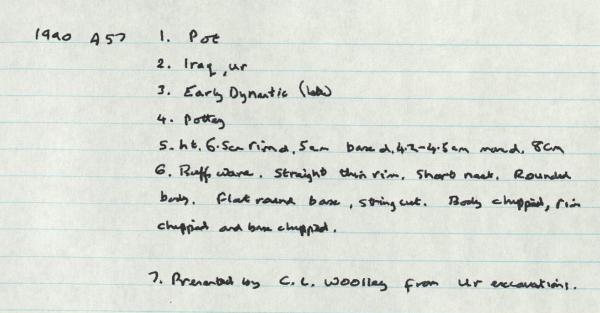 1990 A57 1. Pot
2. Iraq, Ur
3. Early Dynastic (late)
4. Pottery
5. ht. 6.5cm rim d. 5cm base d. 4.2-4.5cm max d. 8cm
6. Buff ware. Straight thin rim. Short neck. Rounded
body. Flat round base, string cut. Body chipped, rim
chipped and base chipped.
7. Presented by C. L. Woolley from Ur excavations.